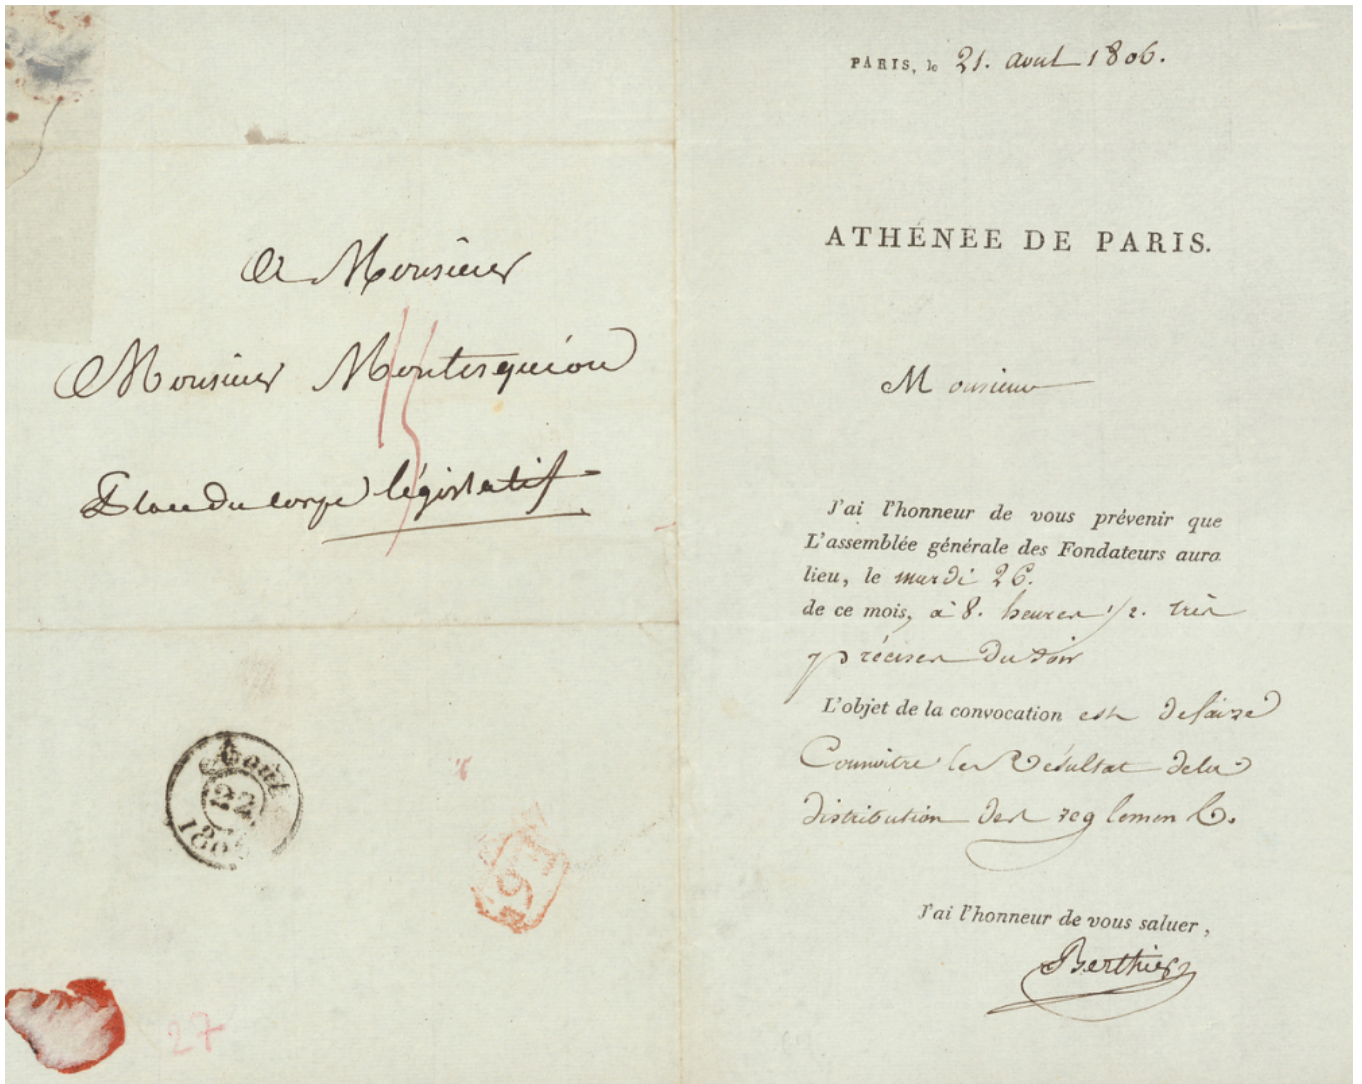 A Monsieur
Monsieur Montesquiou
Place du corps législatif
Aout
22
180
27
PARIS, le 21. aout 1806.
ATHÉNEE DE PARIS.
Monsieur
J'ai l'honneur de vous prévenir que
L'assemblée générale des Fondateurs aura
lieu, le mardi 26.
de ce mois, à 8. heures 1/2. très
précises du soir
L'objet de la convocation est de faire
Connoitre le Résultat de la
distribution des reglemens.
J'ai l'honneur de vous saluer,
Berthier